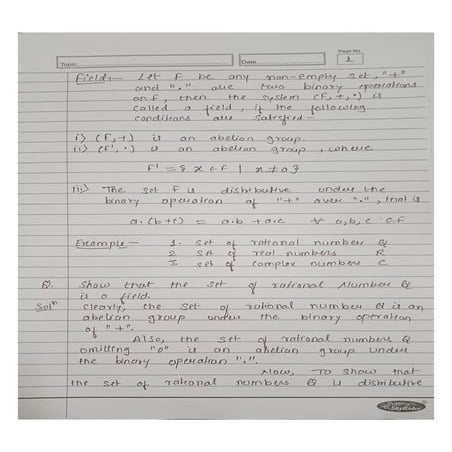 Page No.
Topic
Date
1
Field:- Let F be any non-empty set. "+"
and "." are two binary operations
on F, then the system (F,+,·) is
called a field, if the following
conditions are satisfied -
i) (F,+) is an abelian group.
ii) (F',·) is an abelian group, where
F' = { x ∈ F | x ≠ 0 }
iii) The set F is distributive under the
binary operation of "+" over ".", that is
a.(b+c) = a.b + a.c ∀ a,b,c ∈ F
Example - 1. Set of rational number Q
2 set of real numbers R
3 set of complex number C
Q. Show that the set of rational Number Q
is a field.
Solⁿ Clearly, the set of rational number Q is an
abelian group under the binary operation
of "+".
Also, the set of rational numbers Q
omitting "0" is an abelian group under
the binary operation ".".
Now, To show that
the set of rational numbers Q is distributive